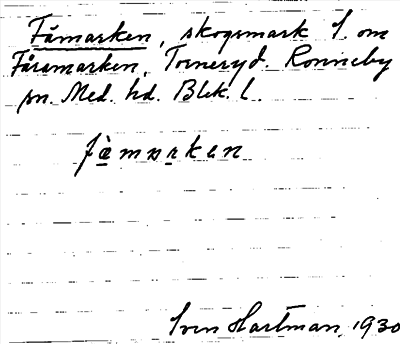 Fåmarken, skogsmark S. om
Fåramarken, Torneryd. Ronneby
sn. Med. hd. Blek. l.
fæ̀marken
Sven Hartman, 1930